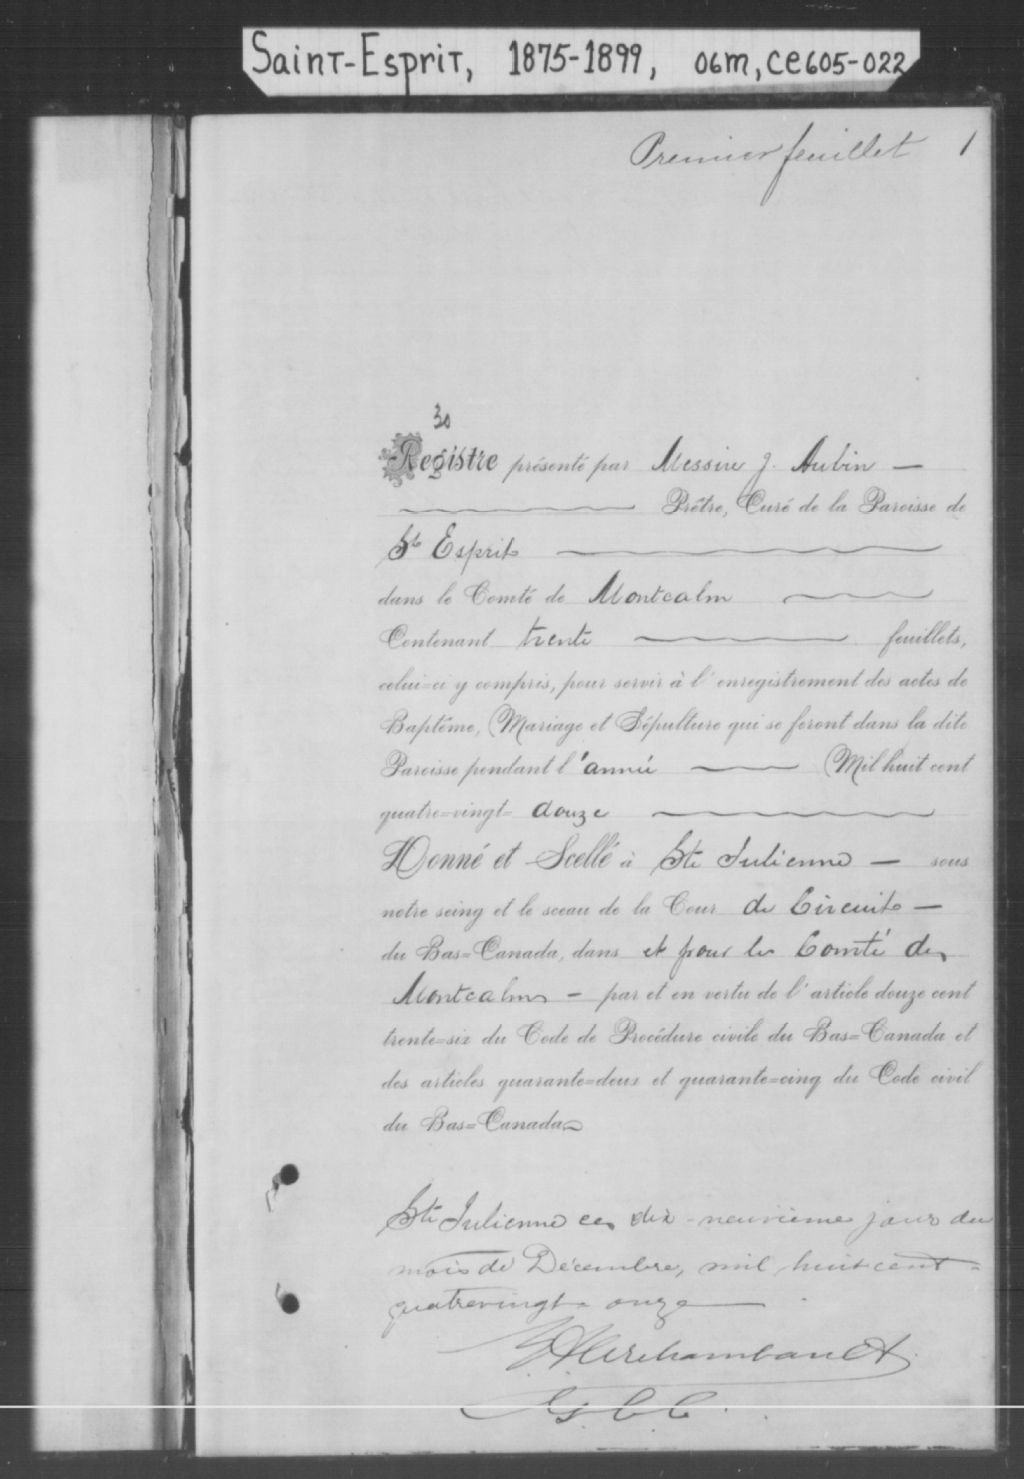 Saint-Esprit, 1875-1899, 06m, ce605-022
Premier feuillet 1
30
Registre présenté par Messire J. Aubin —
Prêtre, Curé de la Paroisse de
St Esprit
dans le Comté de Montcalm
Contenant trente feuillets,
celui=ci y compris, pour servir à l'enregistrement des actes de
Baptême, Mariage et Sépulture qui se feront dans la dite
Paroisse pendant l'année — Mil huit cent
quatre=vingt= douze
Donné et Scellé à Ste Julienne — sous
notre seing et le sceau de la Cour de Circuit —
du Bas=Canada, dans et pour le Comté de
Montcalm — par et en vertu de l'article douze cent
trente=six du Code de Procédure civile du Bas=Canada et
des articles quarante=deux et quarante=cinq du Code civil
du Bas=Canada
Ste Julienne ce dix-neuvième jour du
mois de Décembre, mil huit cent-
quatrevingt-onze
Archambault
C. C.